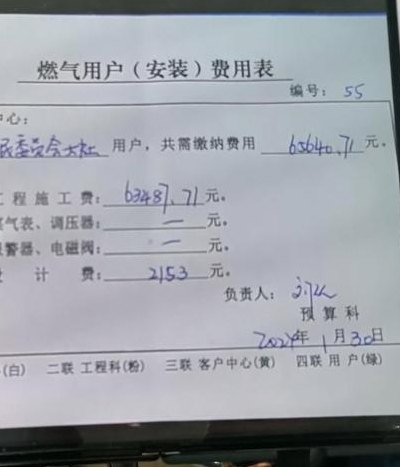 燃气用户（安装）费用表
编号： 55
中心：
民委员会大社 用户，共需缴纳费用 65640.71 元。
工程施工费： 63487.71 元。
气表、调压器： 一 元。
警器、电磁阀： 一 元。
计 费： 2153 元。
负责人：
预算科
2024年 1月30日
(白) 二联 工程科(粉) 三联 客户中心(黄) 四联 用户(绿)